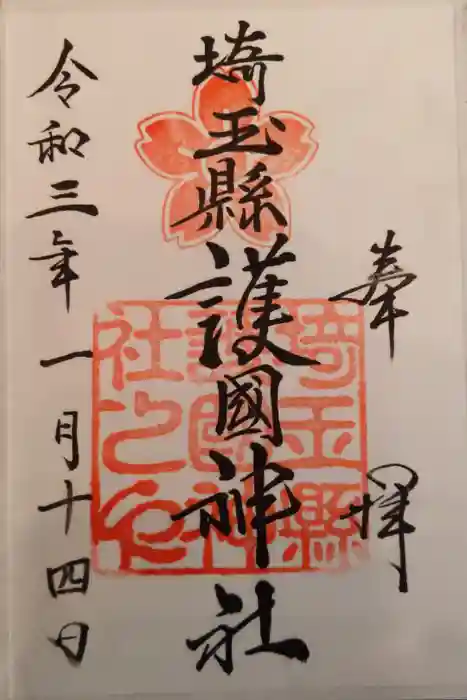 奉拝
埼玉縣護國神社
令和三年一月十四日
埼玉縣
護國神
社之印